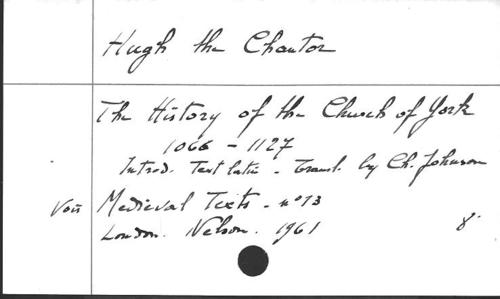 Hugh the Chantor
The History of the Church of York
1066 - 1127
Introd. Text latin - Transl. by Ch. Johnson
Voir Medieval Texts - n° 13
London. Nelson. 1961 8°